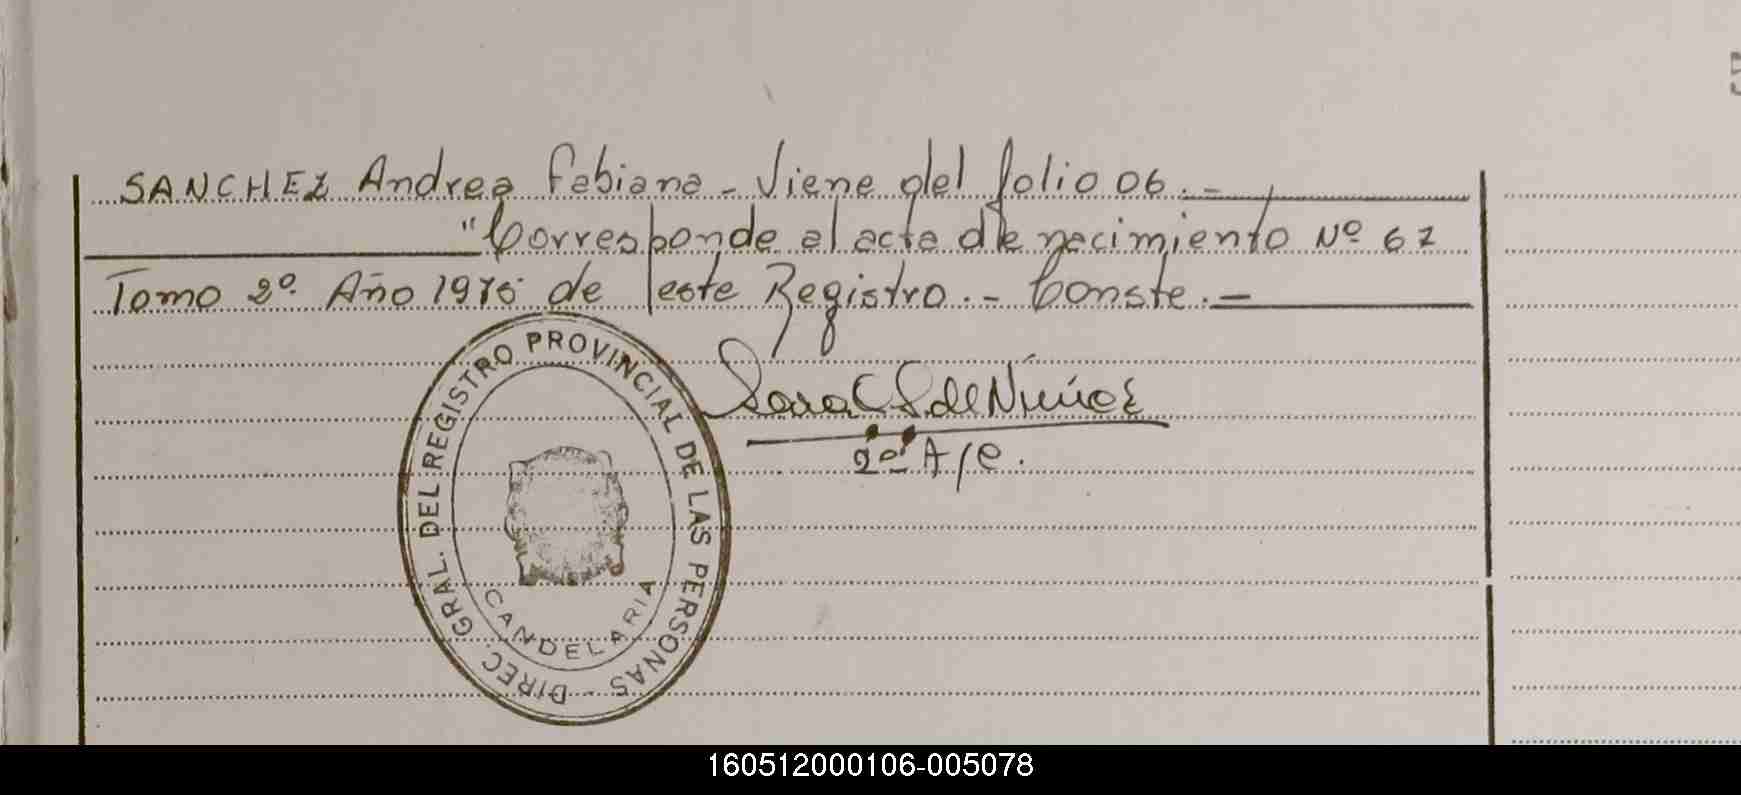 SANCHEZ Andrea Fabiana - Viene del folio 06.-
"Corresponde al acta de nacimiento Nº 67
Tomo 2º. Año 1976 de este Registro.- Conste.-
Sara C S. de Nuñez
2ª A/C.
DIREC. GRAL. DEL REGISTRO PROVINCIAL DE LAS PERSONAS -
CANDELARIA
160512000106-005078